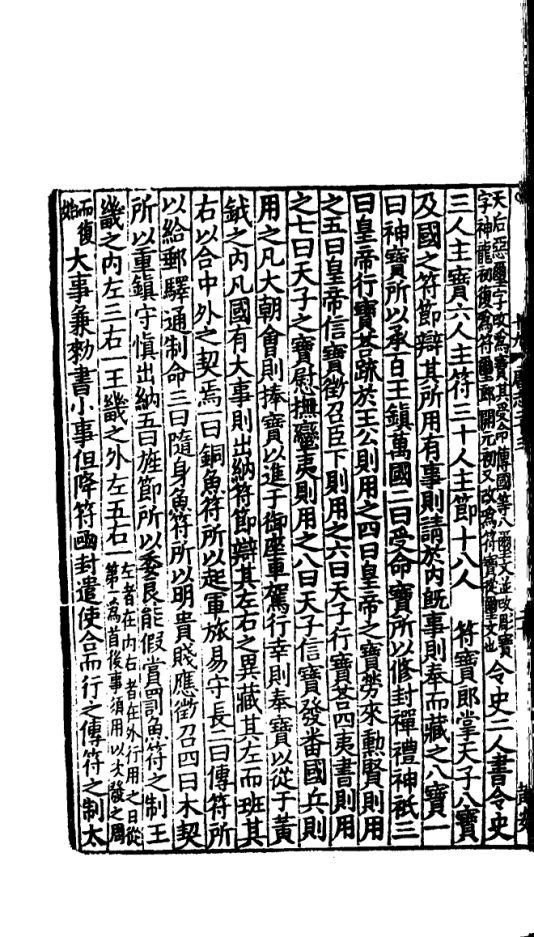 天后惡璽字改為寶其受命傳國等八璽文並改彫寶
字神龍初復為符璽郎開元初又改為符寶從璽文也
令史二人書令史
三人主寶六人主符三十人主節十八人　符寶郎掌天子八寶
及國之符節辯其所用有事則請於內旣事則奉而藏之八寶一
曰神寶所以承百王鎮萬國二曰受命寶所以修封禪禮神祇三
曰皇帝行寶荅疏於王公則用之四曰皇帝之寶勞來勳賢則用
之五曰皇帝信寶徵召臣下則用之六曰天子行寶荅四夷書則用
之七曰天子之寶慰撫蠻夷則用之八曰天子信寶發番國兵則
用之凡大朝會則捧寶以進于御座車駕行幸則奉寶以從于黃
鉞之內凡國有大事則出納符節辯其左右之異藏其左而班其
右以合中外之契焉一曰銅魚符所以起軍旅易守長二曰傳符所
以給郵驛通制命三曰隨身魚符所以明貴賤應徵召四曰木契
所以重鎮守慎出納五曰旌節所以委良能假賞罰魚符之制王
畿之內左三右一王畿之外左五右一
左者在內右者在外行用之日從
第一為首後事須用以次發之周
而復
始
大事兼勑書小事但降符函封遣使合而行之傳符之制太